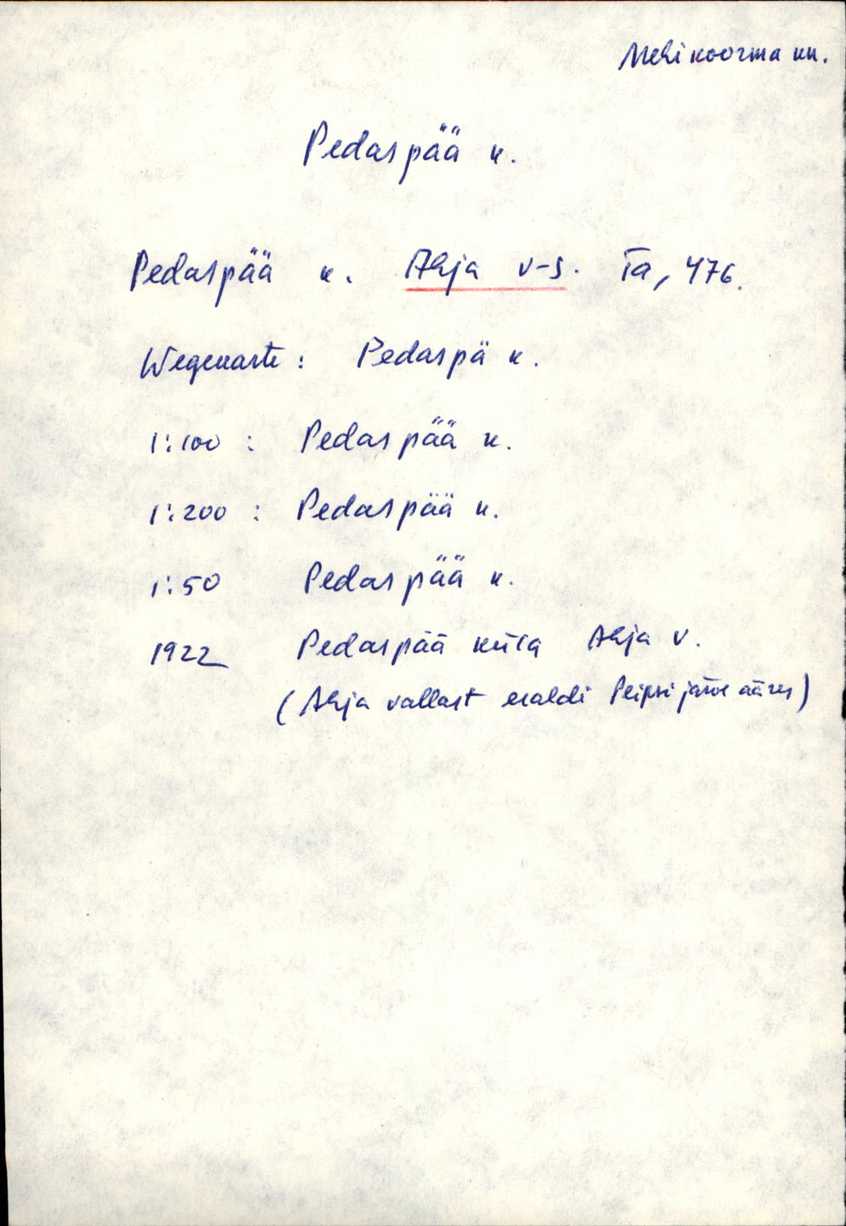 Mehikoorma kn.
Pedaspää k.
Pedaspää k. Ahja v-s. Ta, 476.
Wegekarte: Pedaspä k.
1:100 : Pedaspää k.
1:200 : Pedaspää k.
1:50 Pedaspää k.
1922 Pedaspää küla Ahja v.
(Ahja vallast eraldi Peipsi järve ääres)